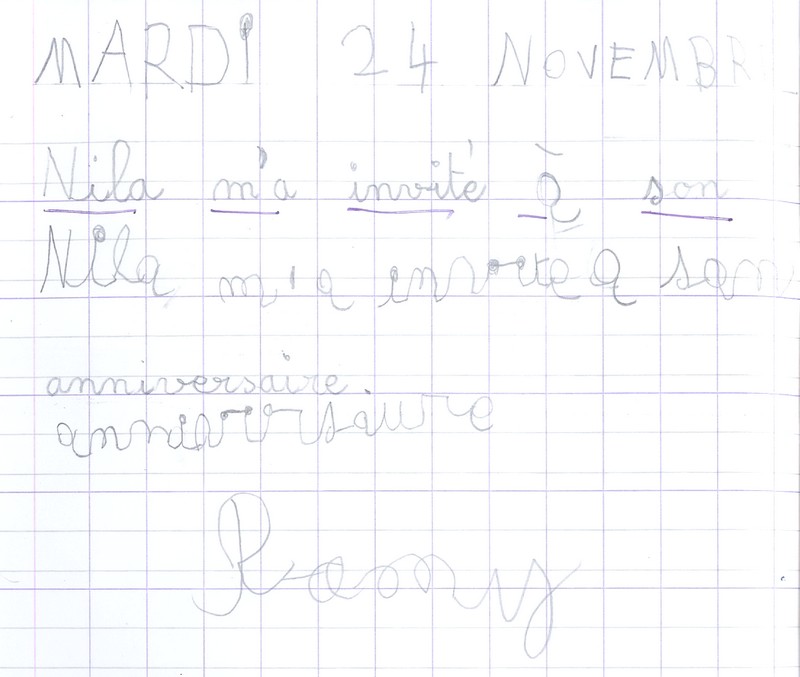 MARDI 24 NOVEMBR
Nila m'a invité à son
Nila m'a invité a son
anniversaire.
anniversaire
Romy